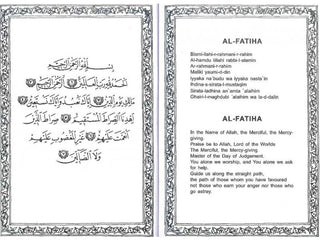 بِسْمِ اللَّهِ الرَّحْمَنِ الرَّحِيمِ
الْحَمْدُ لِلَّهِ رَبِّ الْعَالَمِينَ الرَّحْمَنِ الرَّحِيمِ
مَالِكِ يَوْمِ الدِّينِ إِيَّاكَ نَعْبُدُ وَإِيَّاكَ نَسْتَعِينُ
اهْدِنَا الصِّرَاطَ الْمُسْتَقِيمَ صِرَاطَ الَّذِينَ
أَنْعَمْتَ عَلَيْهِمْ غَيْرِ الْمَغْضُوبِ عَلَيْهِمْ
وَلَا الضَّالِّينَ
AL-FATIHA
Bismi-llahi-r-rahmani-r-rahim
Al-hamdu lillahi rabbi-l-alamin
Ar-rahmani-r-rahim
Maliki yaumi-d-din
Iyyaka na'budu wa iyyaka nasta'in
Ihdina-s-sirata-l-mustaqim
Sirata-ladhina an'amta 'alaihim
Ghairi-l-maghdubi 'alaihim wa la-d-dalin.
AL-FATIHA
In the Name of Allah, the Merciful, the Mercy-
giving.
Praise be to Allah, Lord of the Worlds
The Merciful, the Mercy-giving
Master of the Day of Judgement.
You alone we worship, and You alone we ask
for help.
Guide us along the straight path,
the path of those whom you have favoured
not those who earn your anger nor those who
go astray.